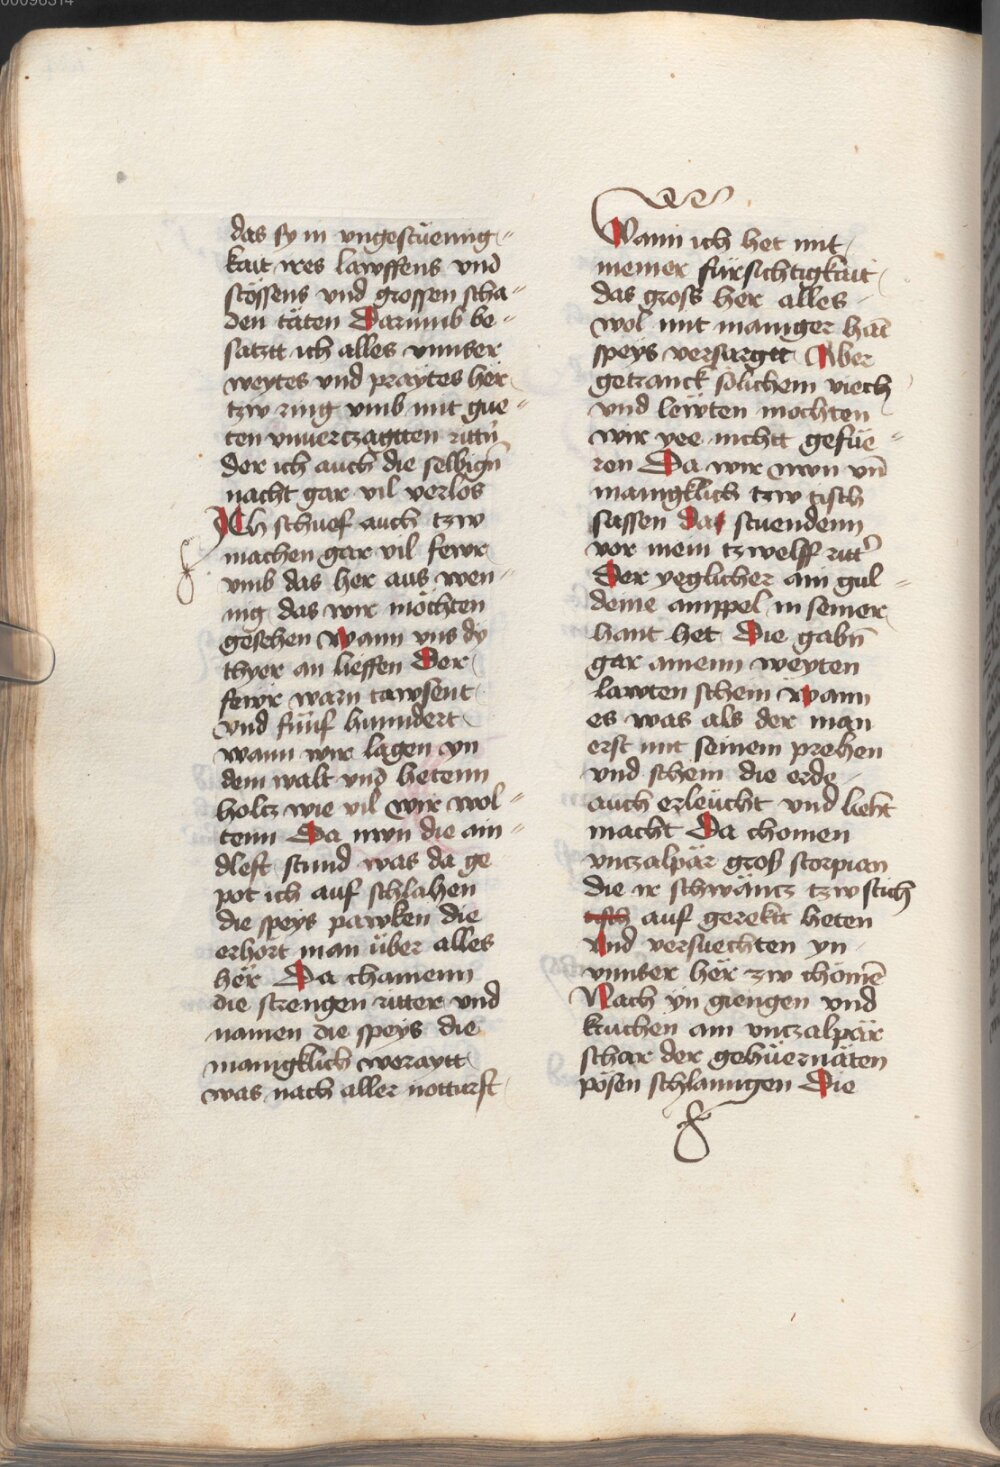 das sy in vngestüemig〃
kait wes lawffens vnd
stössens vnd grossen scha〃
den täten Darumb be〃
satztt ich alles vnnser
weytes vnd praytes her
tzw ring vmb mit gue〃
ten vnuertzagtten rittn̄
der ich auch die selbign̄
nacht gar vil verlos
Ich schuef auch tzw
machen gar vil fewr
vmb das her aus wen〃
nig das wir möchten
gesehen Wann vns dy
thyer an lieffen Der
fewr warn tawsent
vnd fünf hunndert
wann wir lagen yn
dem walt vnd hetenn
holtz wie vil wir wol〃
tenn Da nwn die ain〃
dleft stund was da ge
pot ich auf schlahen
die speys pawken die
erhort man über alles
hër Da chamenn
die strengen ritter vnd
namen die speys die
manigklich weraytt
was nach aller notturft
Wann ich het mit
meiner fürsichtigkait
das gross her alles
wol mit maniger han̄
speys versargtt Aber
getranck sölichem viech
vnd lewten mochten
wir yee nichtt gefüe〃
ren Da wir nwn vn̄
manigklich tzw tisch
sassen das stuendenn
vor mein tzwelff ritt̾
Der yeglicher ain gul〃
deine amppel in seiner
hant het Die gabn̄
gar ainenn weyten
lawten schein Wann
es was als der man
erst mit seinem prehen
vnd schein die erde
auch erleücht vnd lieht
macht Da chomen
vntzalpär groß scorpian
die ir schwäntz tzw stich
auf gerektt heten
Vnd versuechten yn
vnnser hër zw chömē
Nach yn giengen vnd
kruchen ain vntzalpär
schar der gehüernäten
pösen schlanngen Die